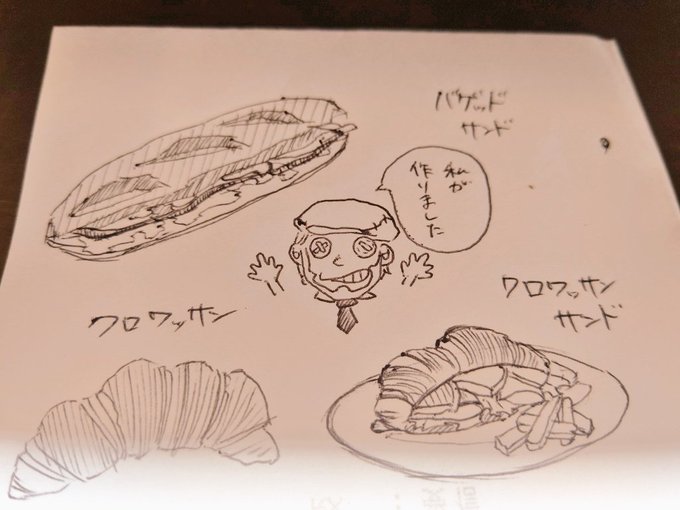 バゲッド
サンド
私が
作りました
クロワッサン
クロワッサン
サンド